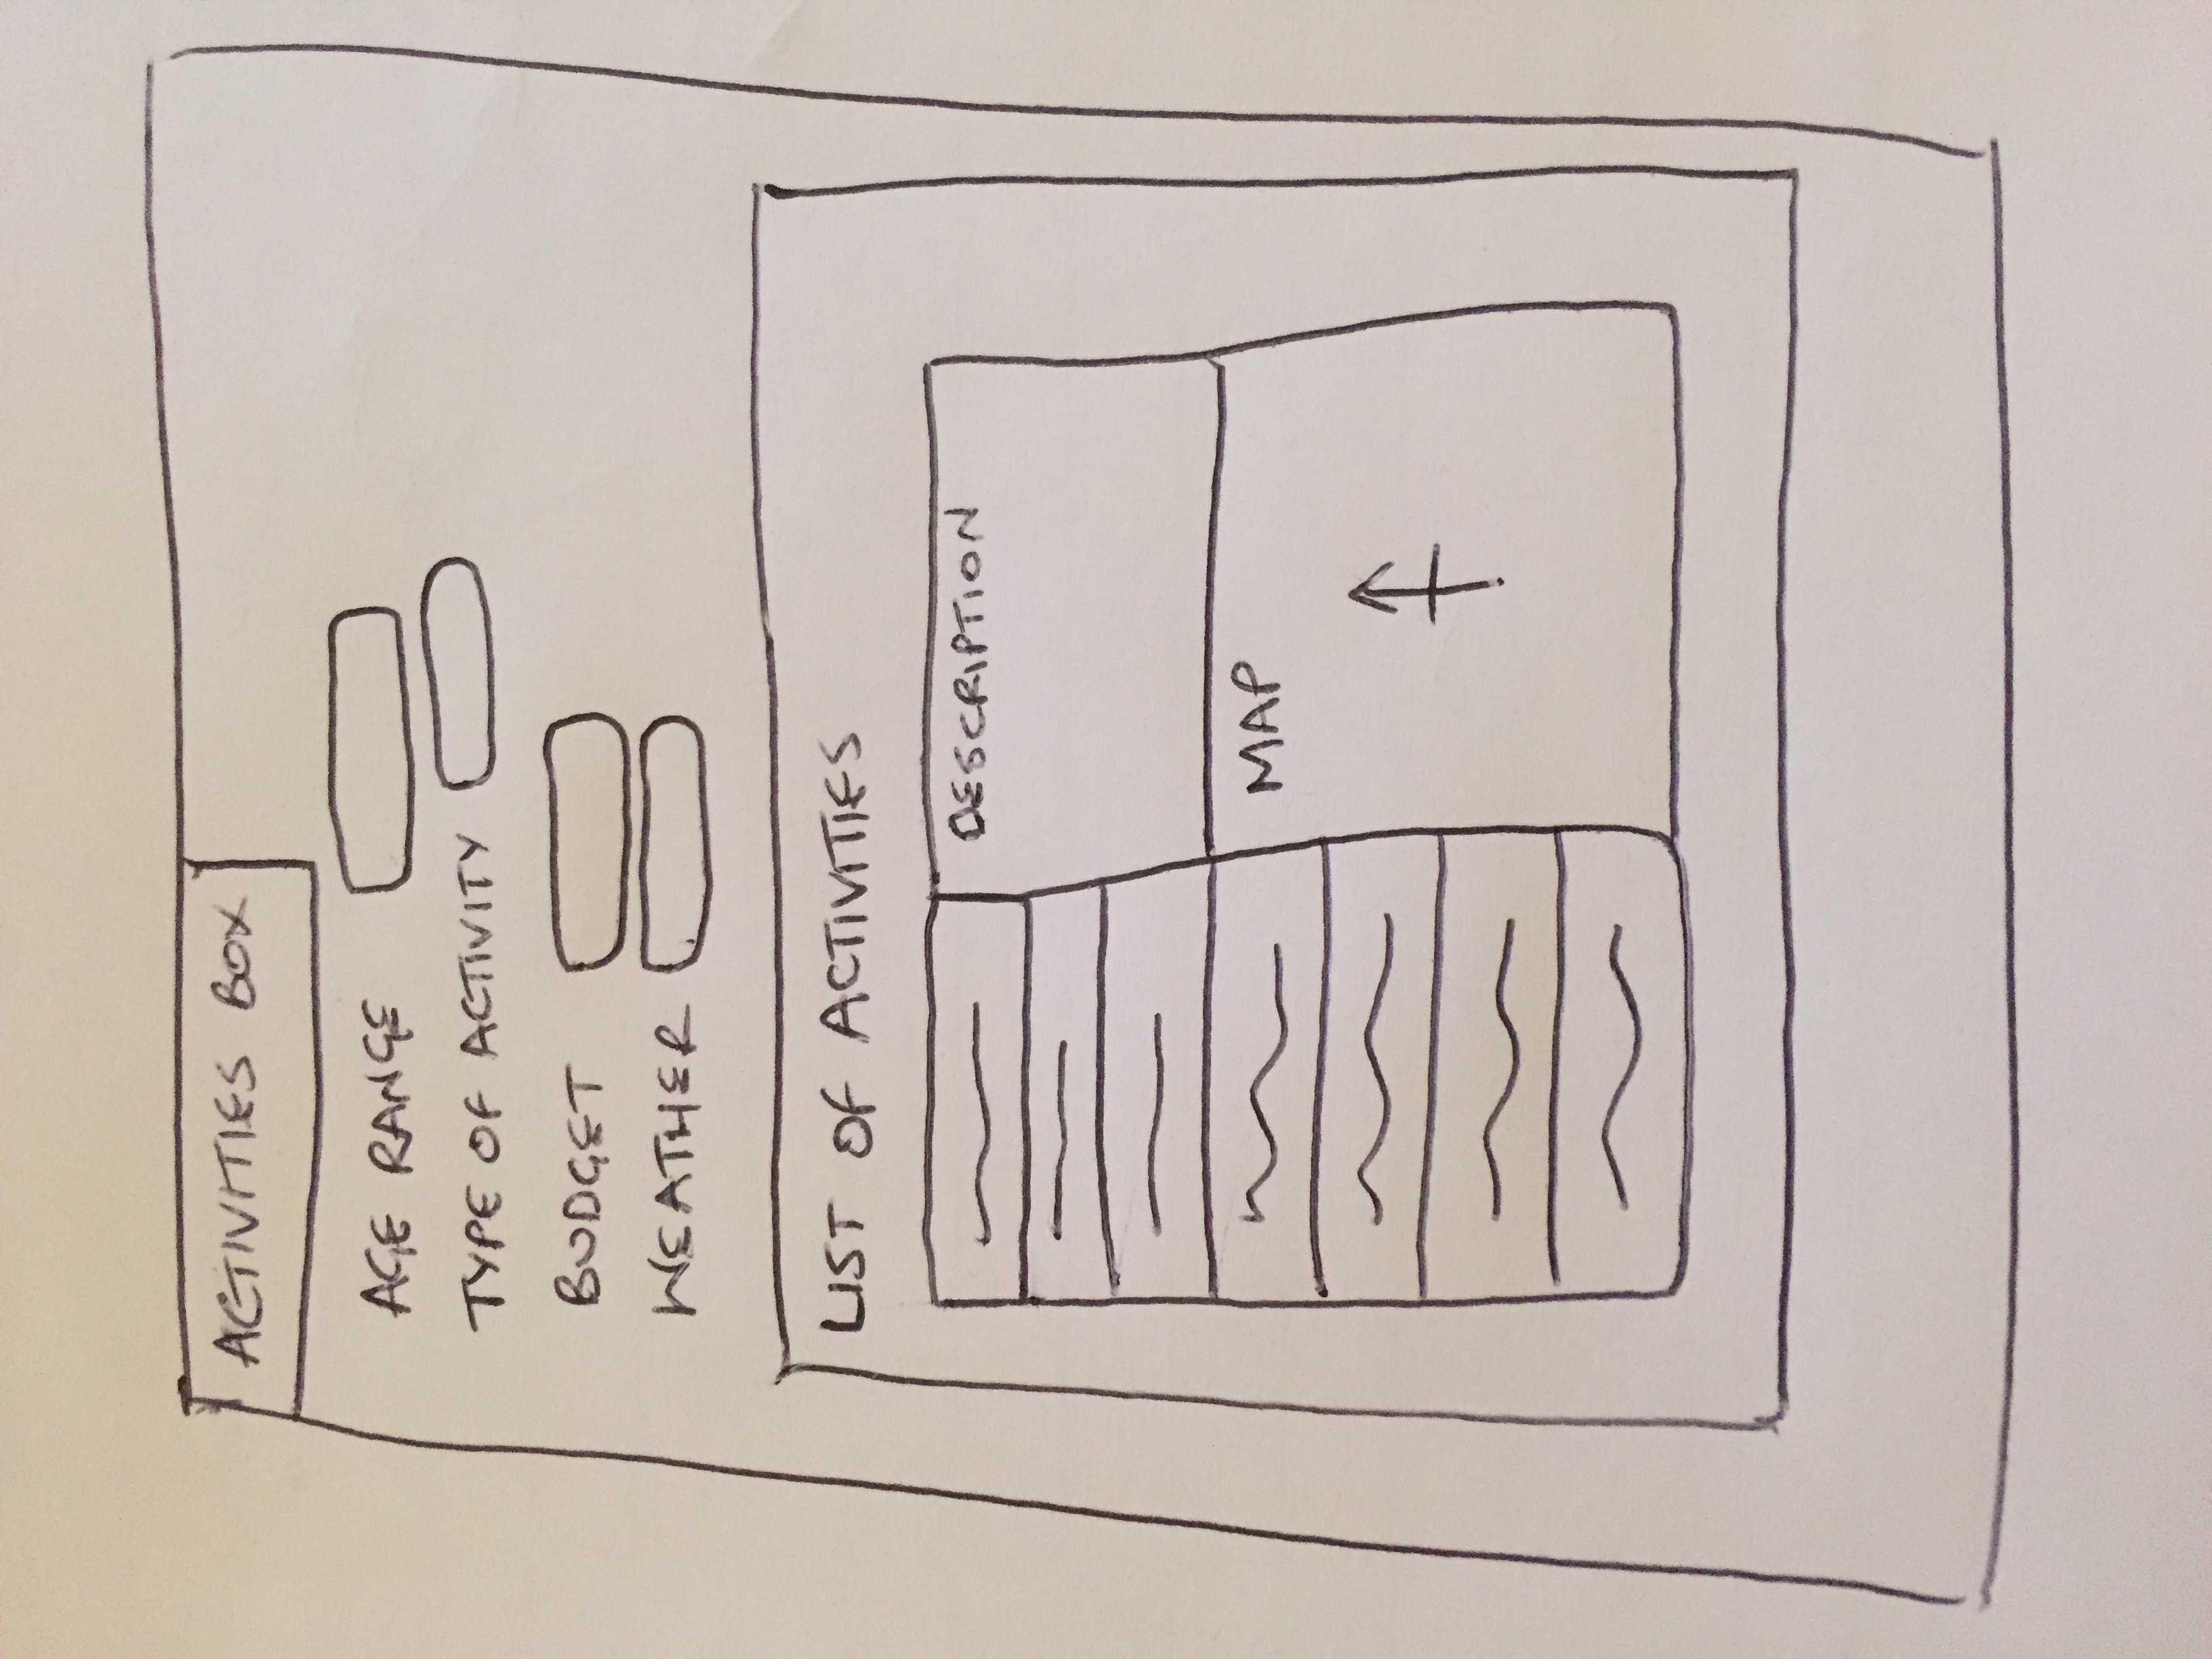 ACTIVITIES BOX
AGE RANGE
TYPE OF ACTIVITY
BUDGET
WEATHER
LIST OF ACTIVITIES
DESCRIPTION
MAP